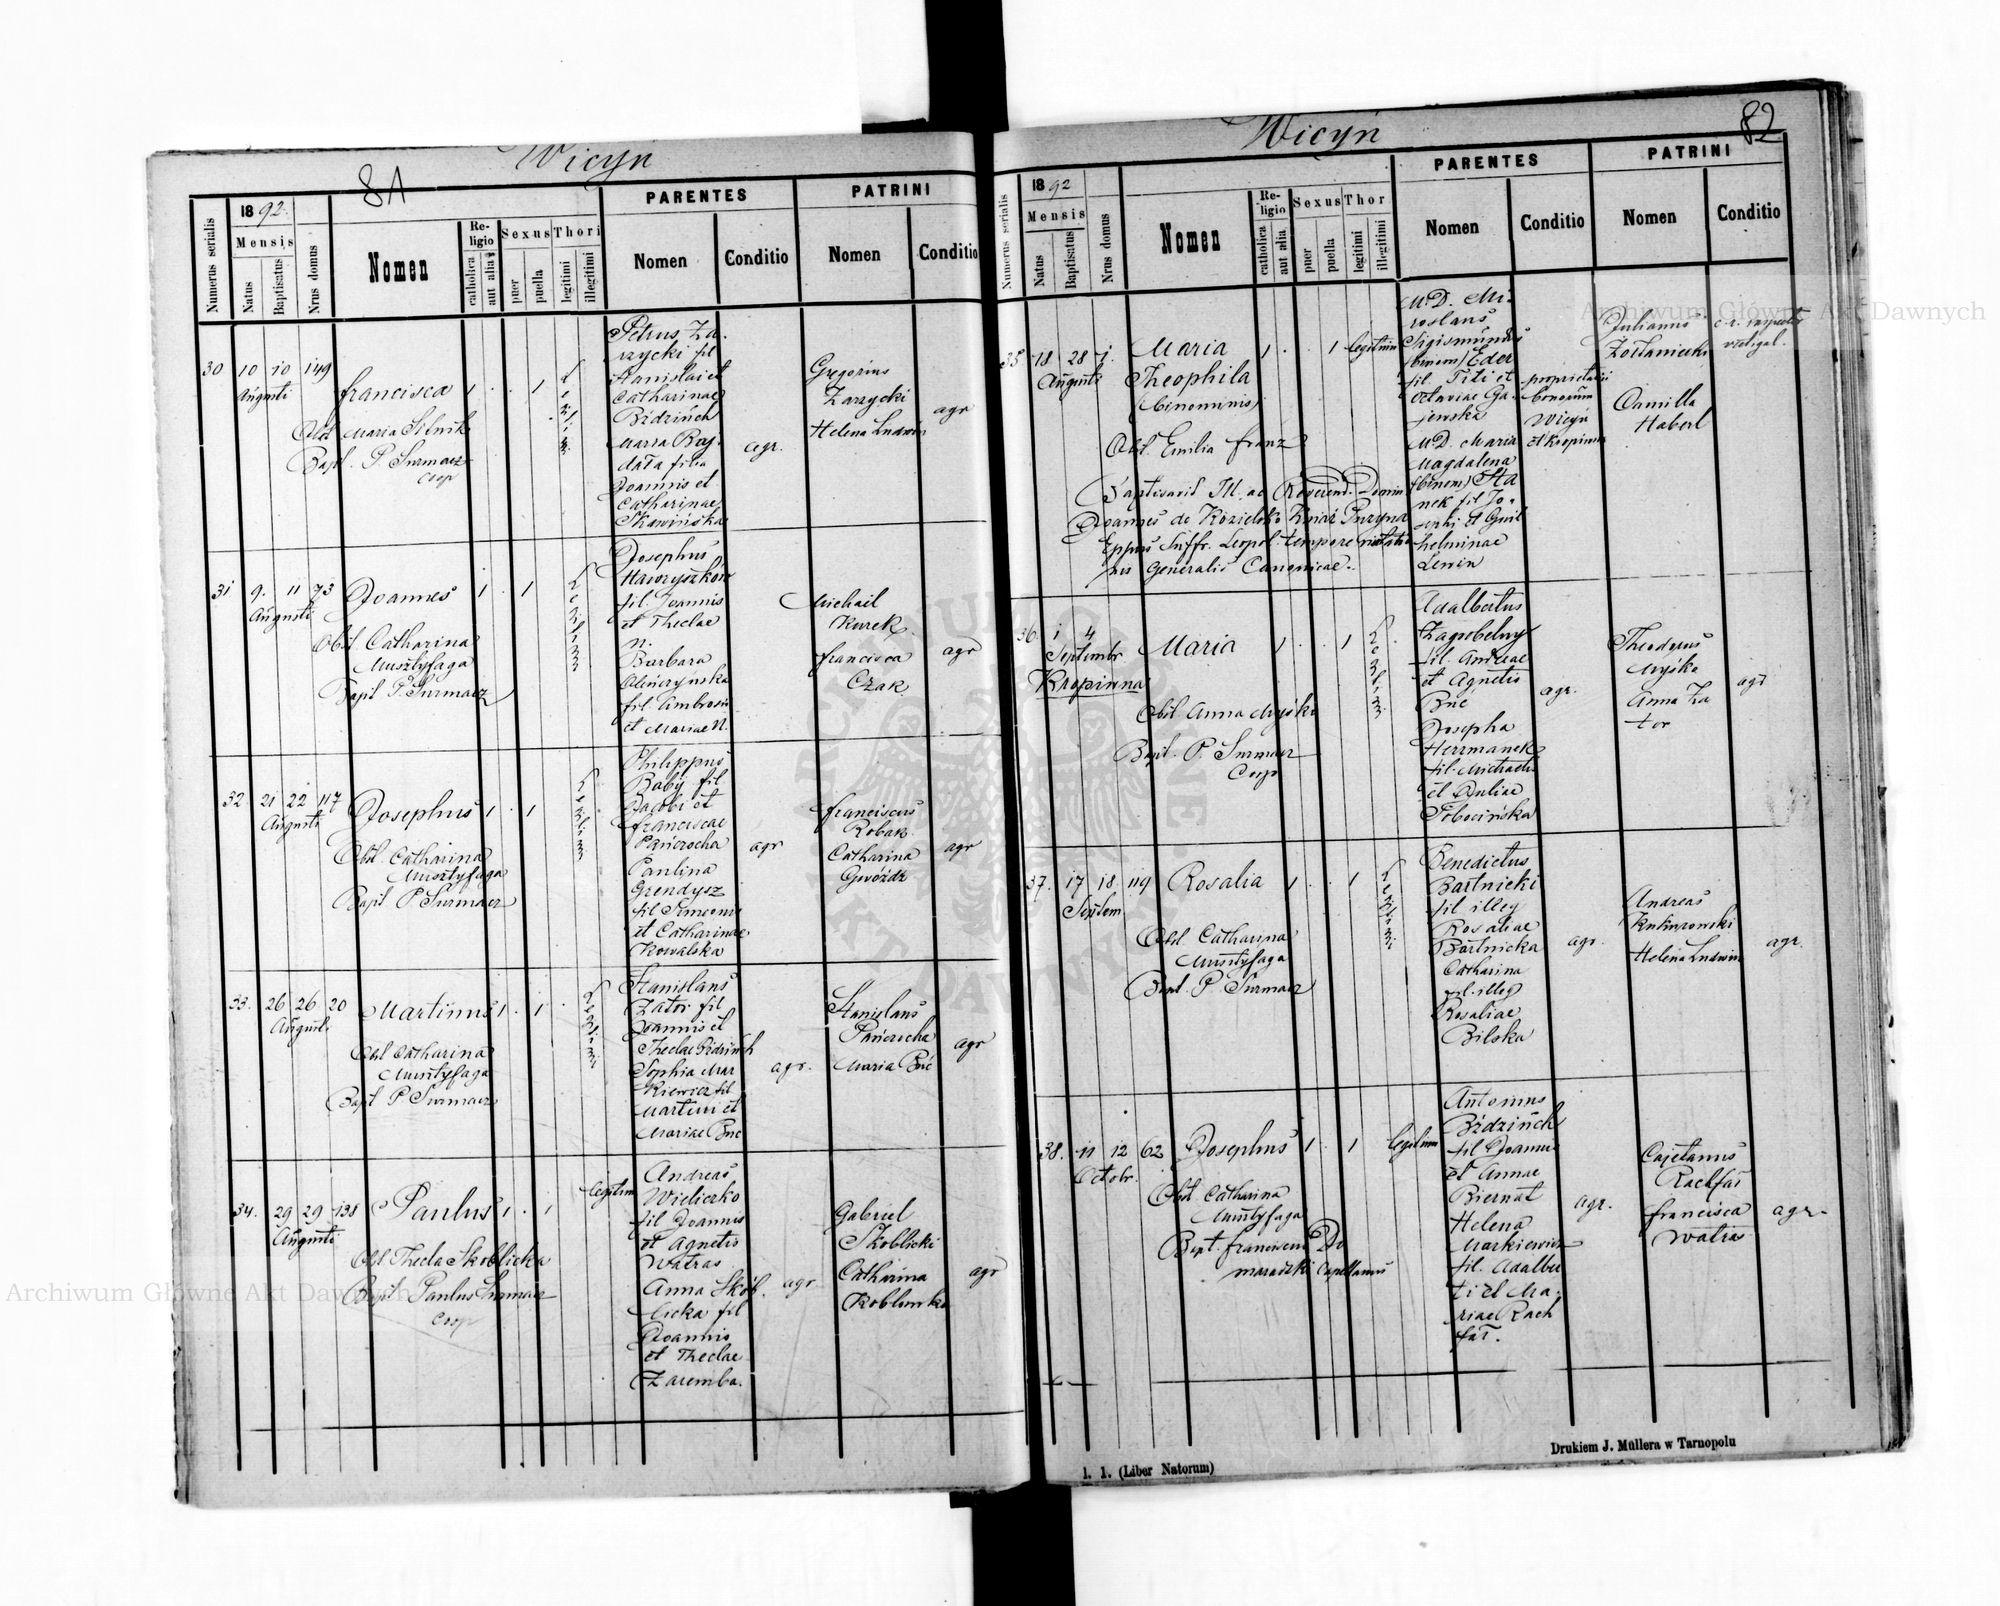 Wicyń
81
Numerus serialis
1892.
Mensis
Natus
Baptisatus
Nrus domus
Nomen
Religio
catholica
aut alia
Sexus
puer
puella
Thori
legitimi
illegitimi
PARENTES
Nomen
Conditio
PATRINI
Nomen
Conditio
30 10 10 149
Augusti
Francisca 1 . . 1
Obst. Maria Silnik
Bapt. P. Surmacz
Coop
Petrus Za-
rzycki fil
Stanislai et
Catharinae
Bidzińch
Maria
data filia
Joannis et
Catharinae
Skawińska
agr.
Gregorius
Zarzycki
Helena Ludwin
agr
31 9. 11 73
Augusti
Joannes 1 . 1
Obst Catharina
Musztyfaga
Bapt P. Surmacz
Josephus
Hawryszków
fil. Joannis
et Theclae
N.
Barbara
fil Ambrosii
et Mariae N.
Michail
Kurek
Francisca
Czak
agr
32. 21 22 117
Augusti
Josephus 1 . 1
Obst. Catharina
Musztyfaga
Bapt P Surmacz
Philippus
Baby fil
Jacobi et
Franciscae
Pańczocha
Paulina
Grendysz
fil Simeonis
et Catharinae
Kowalska
agr
Franciscus
Robak
Catharina
Gwóźdz
agr
33. 26 26 20
August.
Martinus 1 . 1 .
Obst Catharina
Musztyfaga
Bapt P Surmacz
Stanislaus
Zator fil
Joannis et
Theclae Bidzińch
Sophia Mar
kiewicz fil
Martini et
Mariae Buć
agr.
Stanislaus
Pańczocha
Maria Buć
agr
34. 29 29 138
Augusti
Paulus 1 . 1
legitim
Obst Thecla Skoblicka
Bapt Paulus Surmacz
Coop
Andreas
Wieliczko
fil Joannis
et Agnetis
Watras
Anna Skob-
licka fil
Joannis
et Theclae
Zaremba.
agr
Gabriel
Skoblicki
Catharina
Koblinka
agr
Wicyń
82
Numerus serialis
1892
Mensis
Natus
Baptisatus
Nrus domus
Nomen
Religio
catholica
aut alia
Sexus
puer
puella
Thor
legitimi
illegitimi
PARENTES
Nomen
Conditio
PATRINI
Nomen
Conditio
35 18 28 1.
Augusti
Maria 1 . . 1 legitim
Theophila
(binominis)
Obst. Emilia Franz
Baptisavit Ill. ac Reverend. Domin
Joannes de Kozielsko Kniaź Puzyna
Eppus Suffr. Leopol. tempore visitatio
nis Generalis Canonicae.
M. D. Mi-
roslaus
Sigismundus
(binom) Eder
fil. Titi et
Octaviae Ga-
jewska
M. D. Maria
Magdalena
(binom) Sta
nek fil Jo-
sephi et Guil
helminae
Lewin
proprietarii
bonorum
Wicyń
et Kropiwna
Julianus
Zośtaniecki
Camilla
Haberl
c. r. inspector
vectigal.
36. 1 4
Septembr
Kropiwna
Maria 1 . . 1
Obst. Anna Myśko
Bapt. P. Surmacz
Coop
Adalbertus
Zagrobelny
fil. Andreae
et Agnetis
Buć
Josepha
Herrmanek
fil. Michaelis
et Juliae
Tobocińska
agr.
Theodorus
Myśko
Anna Za
tor
agr
37. 17 18. 119
Septem.
Rosalia 1 . . 1
Obst. Catharina
Musztyfaga
Bapt. P Surmacz
Benedictus
Bartnicki
fil illeg
Rosaliae
Bartnicka
Catharina
fil. illeg
Rosaliae
Bilska
agr.
Andreas
Kukurowski
Helena Ludwin
agr.
38. 11 12 62
Octobr.
Josephus 1 . 1 legitim
Obst Catharina
Musztyfaga
Bapt. Franciscus Do
maradzki Capellanus
Antonius
Bidzińch
fil Joannis
et Annae
Biernat
Helena
Markiewicz
fil. Adalber
ti et Ma-
riae Rach
fał.
agr.
Cajetanus
Rachfał
Francisca
Watras
agr.
l. 1. (Liber Natorum)
Drukiem J. Müllera w Tarnopolu
Archiwum Główne Akt Dawnych
Archiwum Główne Akt Dawnych